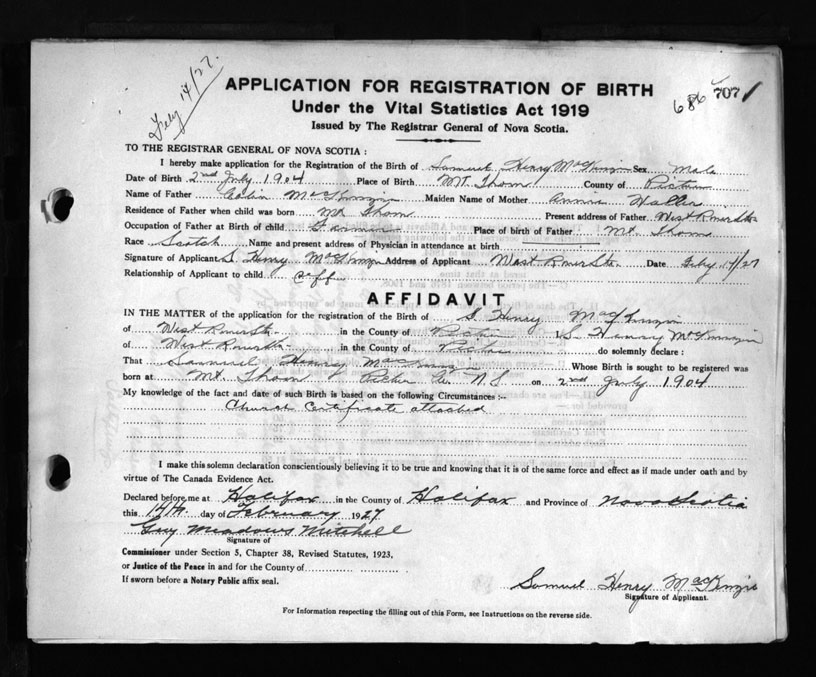 Feby 14/27.
APPLICATION FOR REGISTRATION OF BIRTH
686 707 1
Under the Vital Statistics Act 1919
Issued by The Registrar General of Nova Scotia.
TO THE REGISTRAR GENERAL OF NOVA SCOTIA :
I hereby make application for the Registration of the Birth of Samuel Henry MacKenzie Sex Male
Date of Birth 2nd July 1904 Place of Birth Mt Thom County of Pictou
Name of Father Colin MacKenzie Maiden Name of Mother Annie
Residence of Father when child was born Mt Thom Present address of Father West River Sta.
Occupation of Father at Birth of child Farmer Place of birth of Father Mt. Thom
Race Scotch Name and present address of Physician in attendance at birth
Signature of Applicant S. Henry MacKenzie Address of Applicant West River Sta. Date Feby 14/27
Relationship of Applicant to child
AFFIDAVIT
IN THE MATTER of the application for the registration of the Birth of S. Henry MacKenzie
of West River Sta. in the County of Pictou I, S. Henry McKenzie
of West River Sta. in the County of Pictou do solemnly declare :
That Samuel Henry MacKenzie Whose Birth is sought to be registered was
born at Mt. Thom Pictou Co. N.S on 2nd July 1904
My knowledge of the fact and date of such Birth is based on the following Circumstances :-
Church Certificate attached
I make this solemn declaration conscientiously believing it to be true and knowing that it is of the same force and effect as if made under oath and by
virtue of The Canada Evidence Act.
Declared before me at Halifax in the County of Halifax and Province of Nova Scotia
this 14th day of February 1927
Guy Meadows Mitchell
Signature of
Commissioner under Section 5, Chapter 38, Revised Statutes, 1923,
or Justice of the Peace in and for the County of
If sworn before a Notary Public affix seal.
Samuel Henry MacKenzie
Signature of Applicant.
For Information respecting the filling out of this Form, see Instructions on the reverse side.